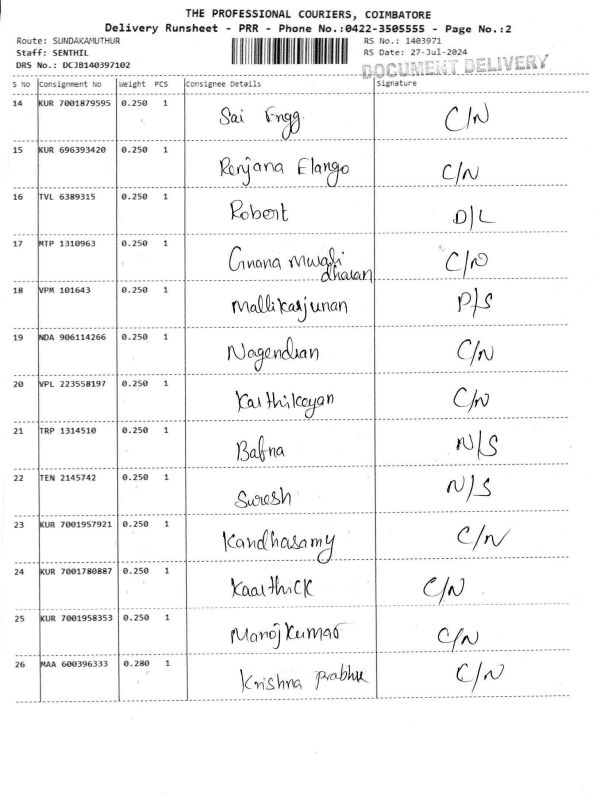 THE PROFESSIONAL COURIERS, COIMBATORE
Delivery Runsheet - PRR - Phone No.:0422-3505555 - Page No.:2
Route: SUNDAKAMUTHUR RS No.: 1403971
Staff: SENTHIL RS Date: 27-Jul-2024
DRS No.: DCJB140397102 DOCUMENT DELIVERY
S No Consignment No Weight PCS Consignee Details Signature
14 KUR 7001879595 0.250 1 Sai Engg. C/N
15 KUR 696393420 0.250 1 Renjana Elango C/N
16 TVL 6389315 0.250 1 Robert D/L
17 MTP 1310963 0.250 1 Gnana Murali C/N
dharan
18 VPM 101643 0.250 1 Mallikarjunan P/S
19 NDA 906114266 0.250 1 Nagendran C/N
20 VPL 223558197 0.250 1 Karthikeyan C/N
21 TRP 1314510 0.250 1 Bafna N/S
22 TEN 2145742 0.250 1 Suresh N/S
23 KUR 7001957921 0.250 1 Kandhasamy C/N
24 KUR 7001780887 0.250 1 Kaarthick C/N
25 KUR 7001958353 0.250 1 Manojkumar C/N
26 MAA 600396333 0.280 1 Krishna Prabhu C/N